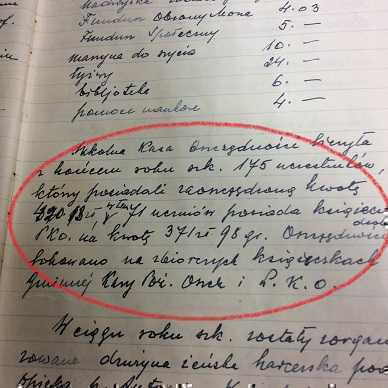 Fundusz Obrony Mors. 4.03
Fundusz Społeczny 5.—
maszyna do szycia 10.—
24.—
bibljoteka 6.—
pomoce naukow 4.—
Szkolna Kasa Oszczędności liczyła
z końcem roku szk. 175 uczestników,
który posiadali zaoszczędzoną kwotę
420.18 zł w tem 71 uczniów posiada książecz
PKO. na kwotę 371 zł 98 gr. Oszczędności
dokonano na zbiorczych książeczkach
Gminnej Kasy Poż. Oszcz i P. K. O.
W ciągu roku szk. zostały zorgan
zowane drużyna żeńska harcerska pod